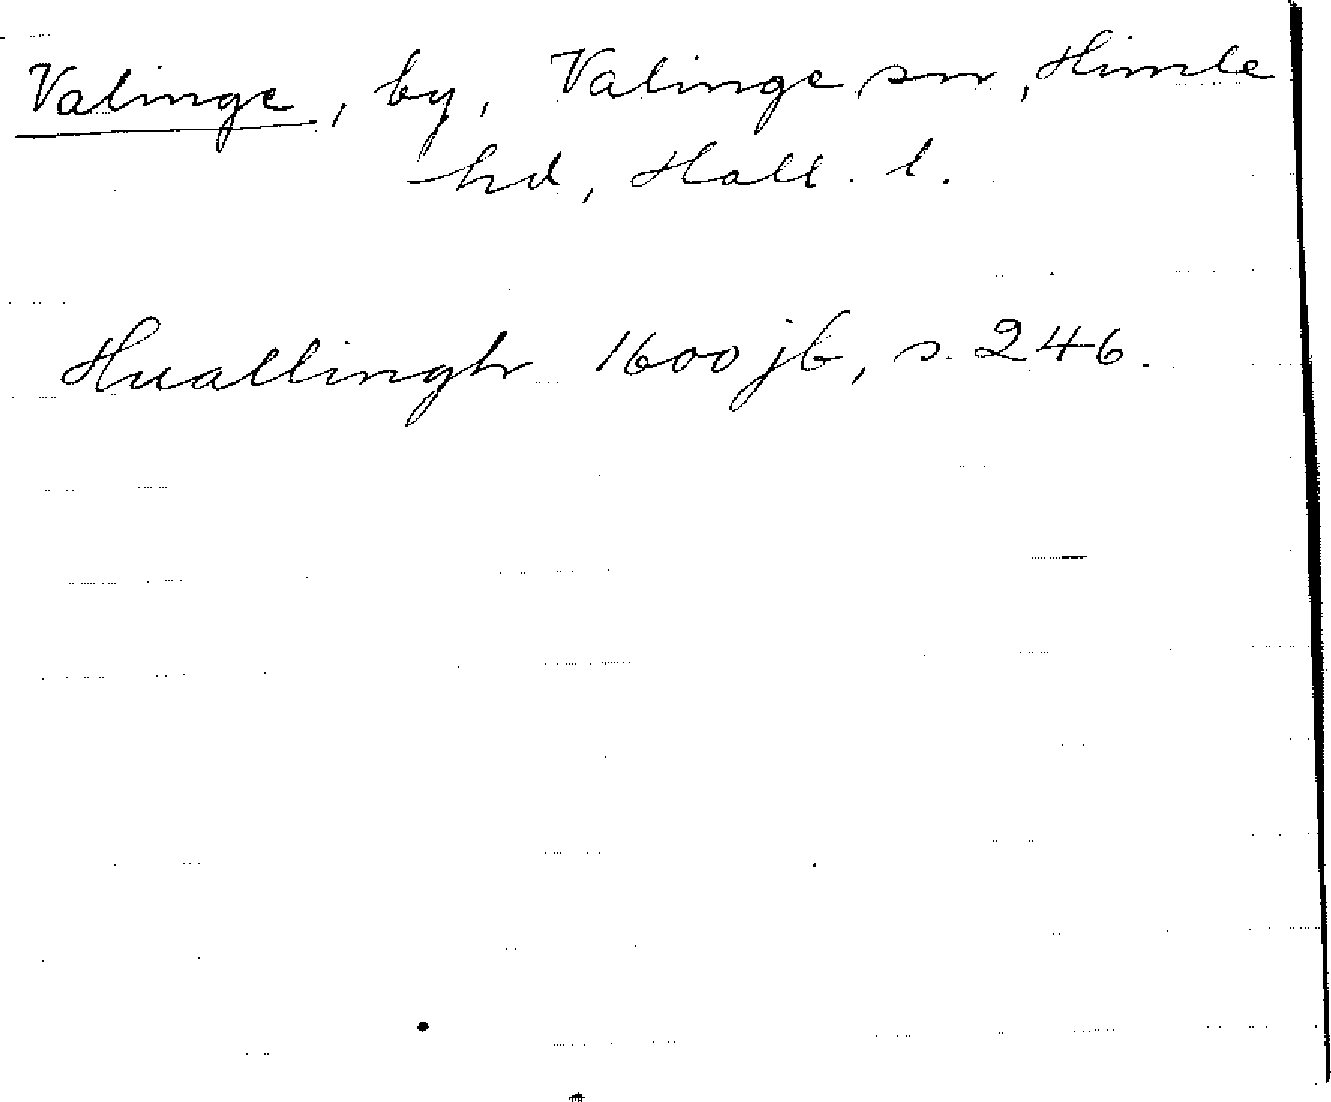 Valinge, by, Valinge sn, Himle
hd, Hall. l.
Huallingh 1600 jb, s. 246.